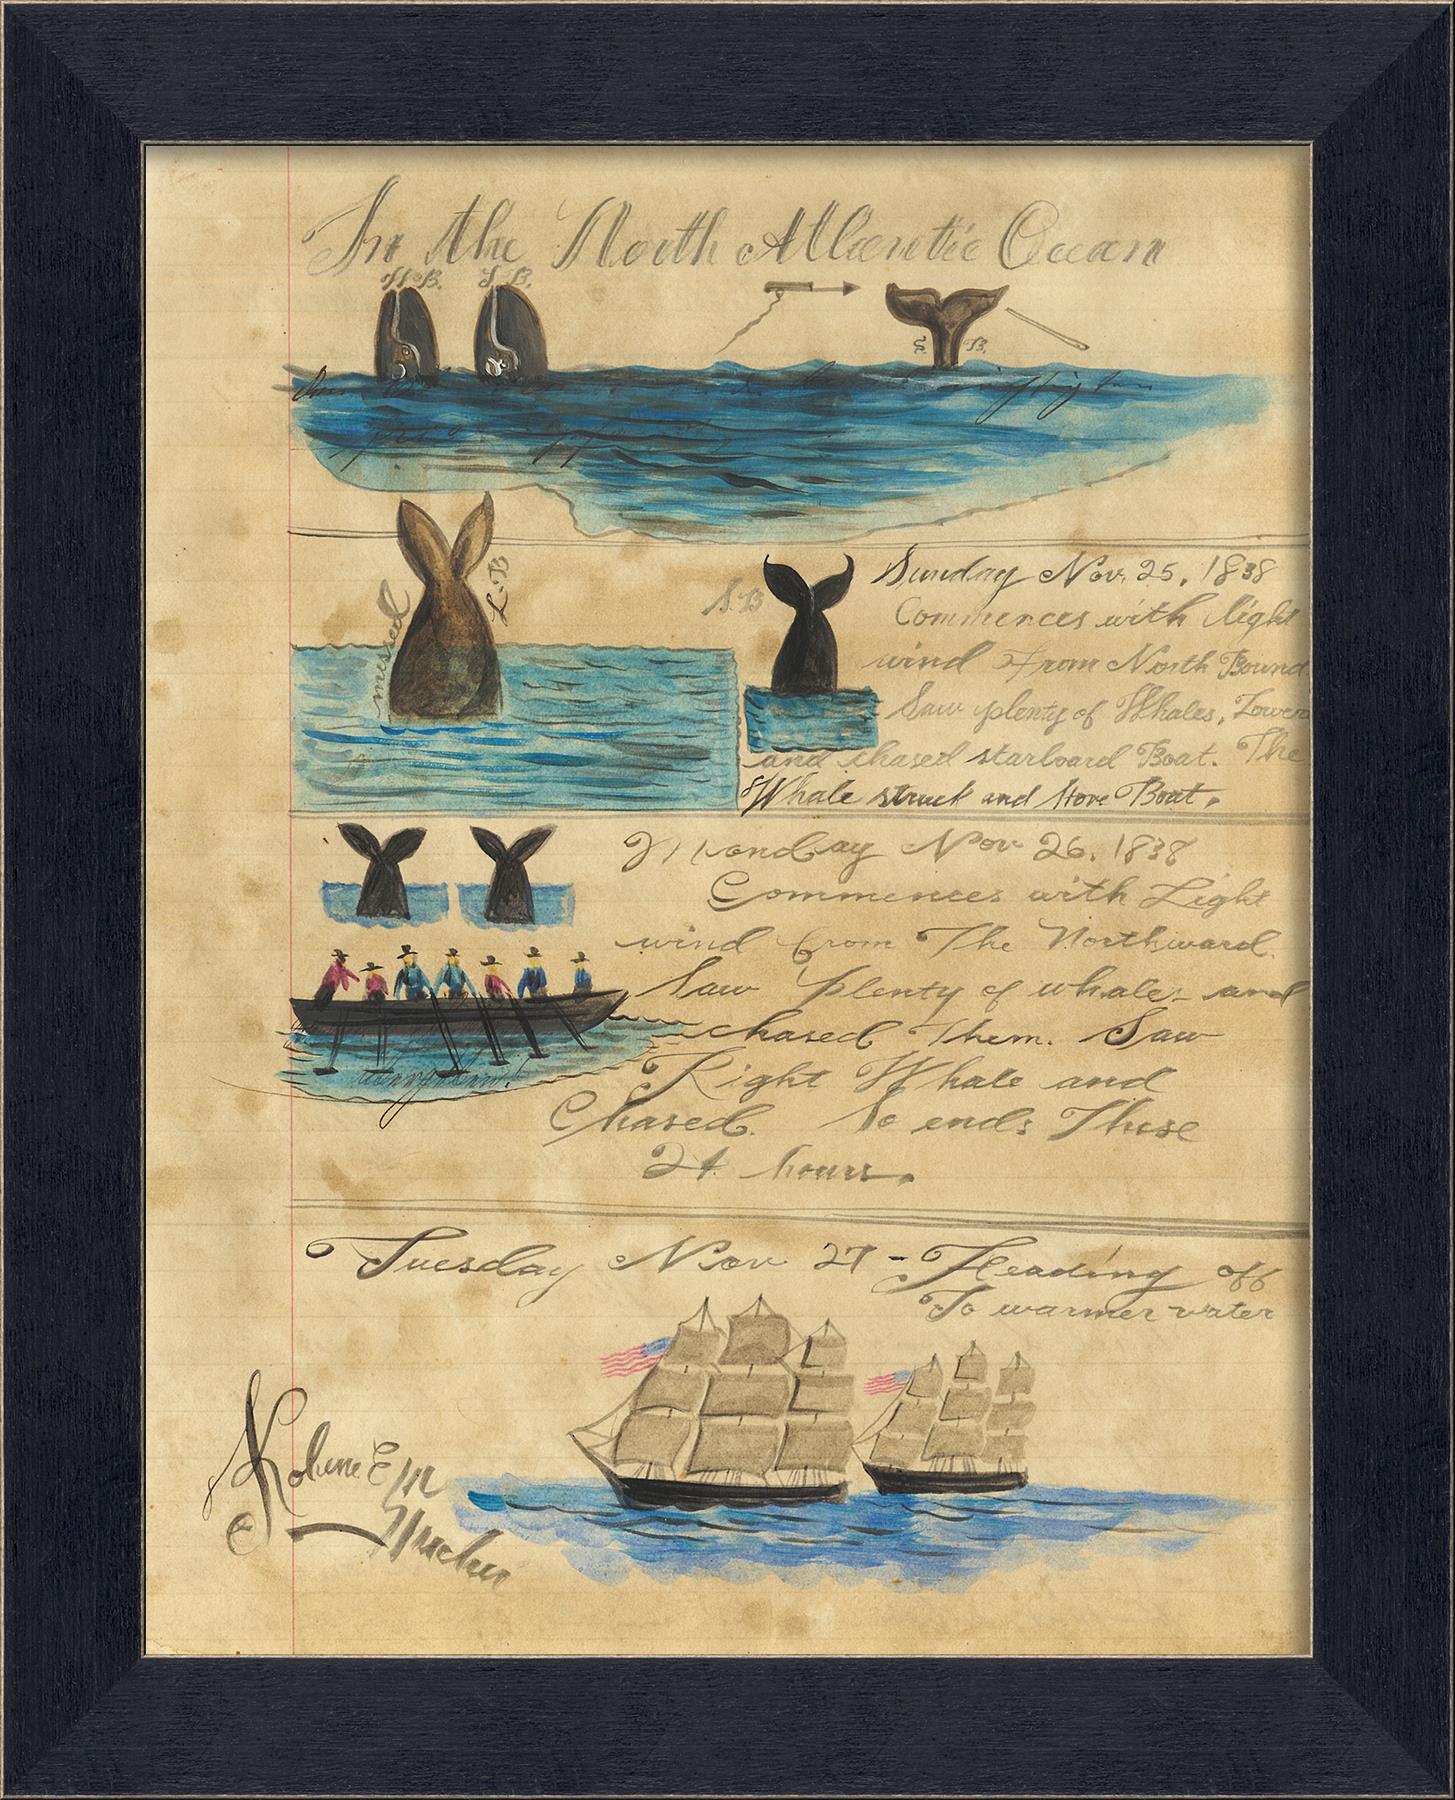 In the North Atlantic Ocean
B. S. B.
S. B.
missed
L-B
S. B
Sunday Nov. 25, 1838
Commences with light
wind From North Bound
Saw plenty of Whales, Lower
and chased starboard Boat. The
Whale struck and stove Boat.
Monday Nov 26. 1838
Commences with Light
wind from The Northward.
Saw plenty of whale - and
chased Them. Saw
Right Whale and
Chased. So ends These
24 hours.
Tuesday Nov 27 - Heading off
To warmer water